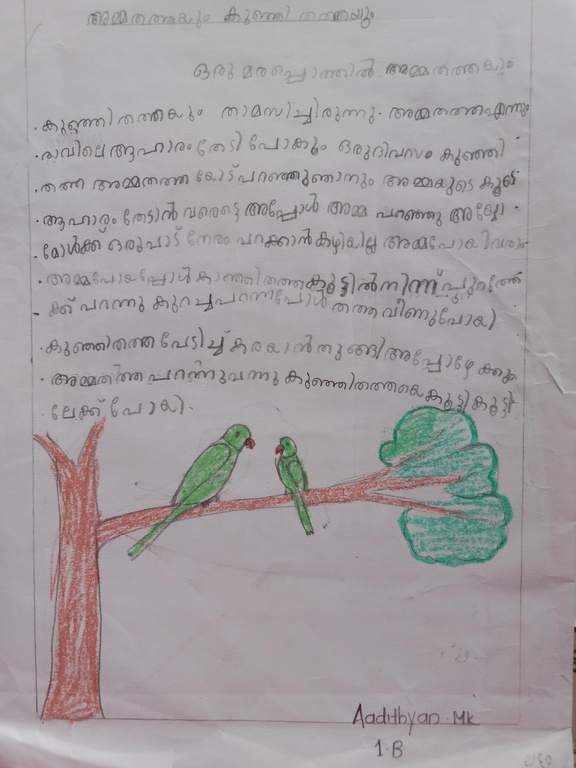 അമ്മതത്തയും കുഞ്ഞി തത്തയും
ഒരു മരപ്പൊത്തിൽ അമ്മതത്തയും
കുഞ്ഞിതത്തയും താമസിച്ചിരുന്നു. അമ്മതത്തഎന്നും
രാവിലെ ആഹാരം തേടി പോകും ഒരുദിവസം കുഞ്ഞി
തത്ത അമ്മതത്തയോട് പറഞ്ഞുഞാനും അമ്മയുടെ കൂടെ
ആഹാരം തേടാൻ വരട്ടെ അപ്പോൾ അമ്മ പറഞ്ഞു അയ്യോ
മോൾക്ക് ഒരുപാട് നേരം പറക്കാൻകഴിയില്ല അമ്മപോയിവരാം
അമ്മപോയപ്പോൾ കുഞ്ഞിതത്തകൂട്ടിൽനിന്ന് പുറത്തേ
ക്ക് പറന്നു കുറച്ചുപറന്നപോൾ തത്ത വീണുപോയി
കുഞ്ഞിതത്ത പേടിച്ച് കരയാൻതുങ്ങിഅപ്പോഴേക്കും
അമ്മതത്ത പറന്നുവന്നു കുഞ്ഞിതത്തയെകൂട്ടികൂട്ടി
ലേക്ക് പോയി.
Aadithyan. Mk
1.B